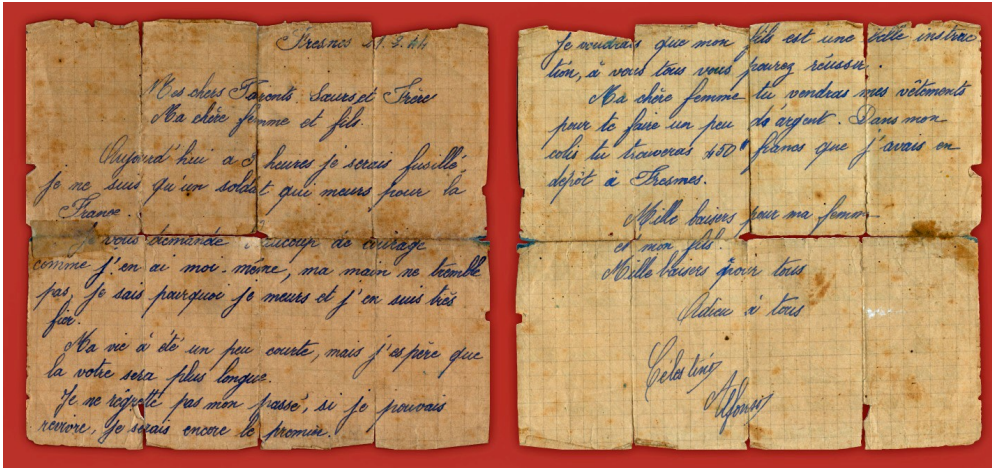 Fresnes 21.2.44
Mes chers Parents. Sœurs et Frère
Ma chère femme et fils.
Aujourd'hui a 3 heures je serais fusillé
je ne suis qu'un soldat qui meurs pour la
France.
Je vous demande beaucoup de courage
comme j'en ai moi-même, ma main ne tremble
pas, je sais pourquoi je meurs et j'en suis très
fier.
Ma vie à été un peu courte, mais j'espère que
la votre sera plus longue.
Je ne régrette pas mon passé, si je pouvais
revivre, je serais encore le premier.
Je voudrais que mon fils est une belle instruc
tion, à vous tous vous pourez réussir.
Ma chère femme tu vendras mes vêtements
pour te faire un peu d'argent. Dans mon
colis tu trouveras 450 francs que j'avais en
depôt à Fresnes.
Mille baisers pour ma femme
et mon fils.
Mille baisers pour tous
Adieu à tous
Célestino
Alfonso